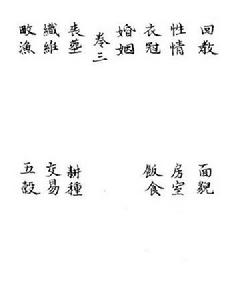 回教 面貌
性情 房室
衣冠 飯食
婚姻
卷三
喪葬 耕種
織維 交易
畋漁 五穀